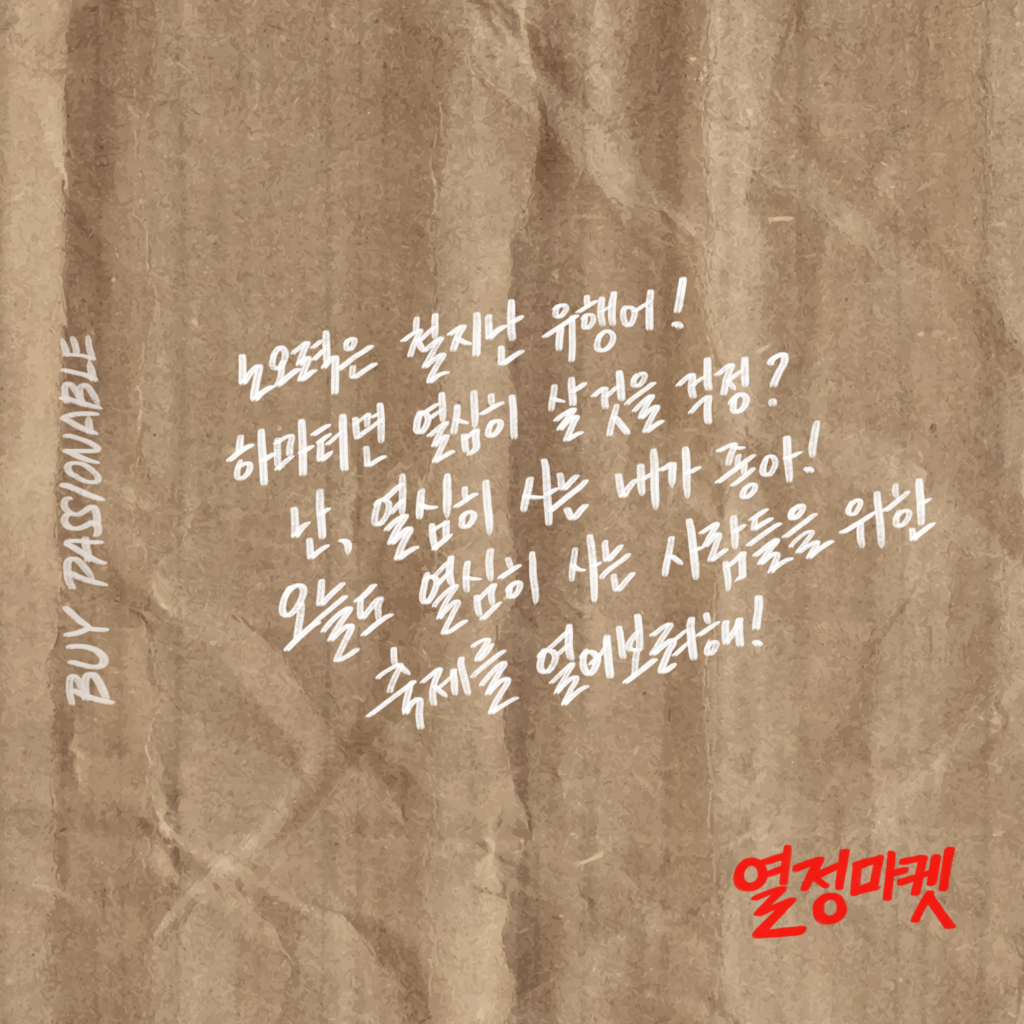 BUY PASSIONABLE
노오력은 철지난 유행어!
하마터면 열심히 살것을 걱정?
난, 열심히 사는 내가 좋아!
오늘도 열심히 사는 사람들을 위한
축제를 열어보려해!
열정마켓